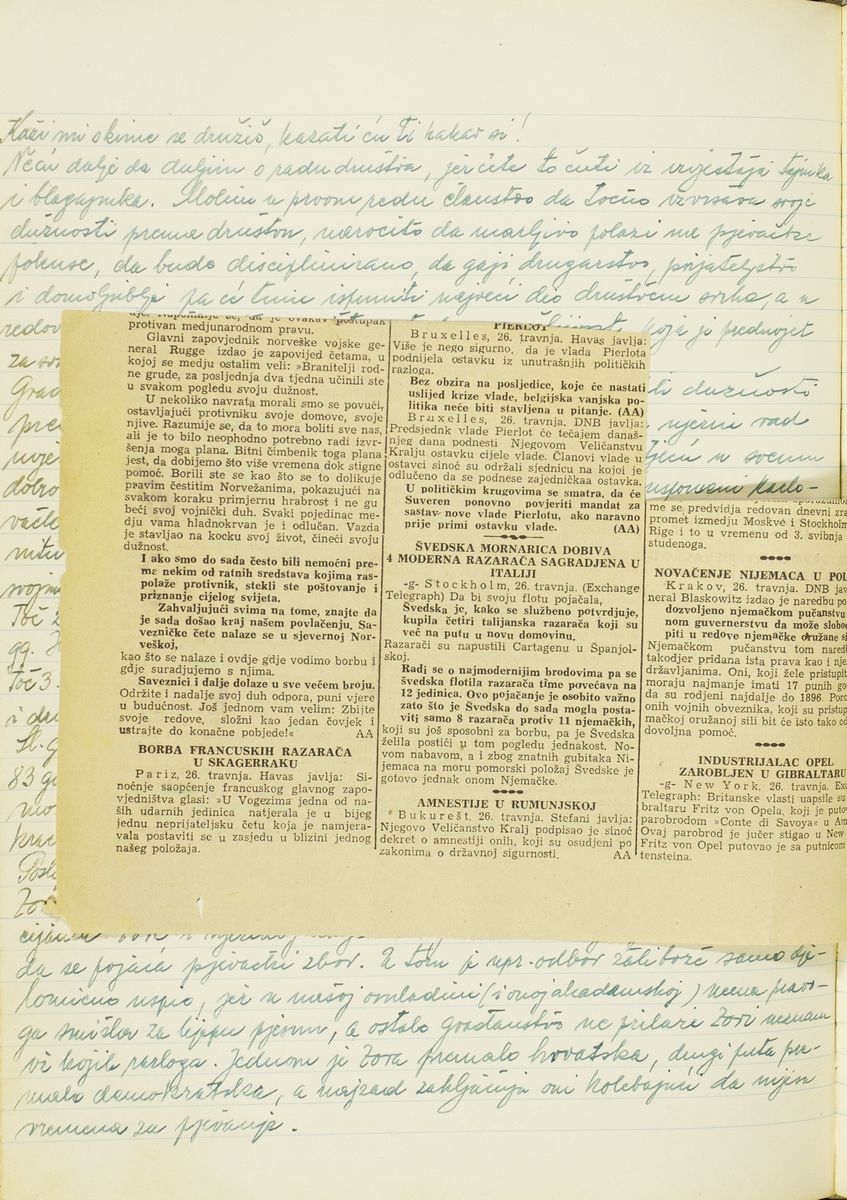 Kaži mi s kime se družiš, kazati ću ti kakav si!
Neću dalje da duljim o radu društva, jer ćete to čuti iz izvještaja tajnika
i blagajnika. Molim u prvom redu članstvo da točno izvršava svoje
dužnosti prema društvu, naročito da marljivo polazi na pjevačke
pokuse, da bude disciplinirano, da gaji drugarstvo, prijateljstvo
i domoljublje pa će time ispuniti najveći dio društvene svrhe, a u
redov
koja je preduvjet
za
dužnosti
Grad
rad
pre
u svemu
moje
uspomeni Karlo-
dobro
Toč
gg.
Toč 3.
i dru
83 go
krac
Posl
Zor
protivan medjunarodnom pravu.
Glavni zapovjednik norveške vojske ge-
neral Rugge izdao je zapovijed četama, u
kojoj se medju ostalim veli: »Branitelji rod-
ne grude, za posljednja dva tjedna učinili ste
u svakom pogledu svoju dužnost.
U nekoliko navrata morali smo se povući,
ostavljajući protivniku svoje domove, svoje
njive. Razumije se, da to mora boliti sve nas,
ali je to bilo neophodno potrebno radi izvr-
šenja moga plana. Bitni čimbenik toga plana
jest, da dobijemo što više vremena dok stigne
pomoć. Borili ste se kao što se to dolikuje
pravim čestitim Norvežanima, pokazujući na
svakom koraku primjernu hrabrost i ne gu
beći svoj vojnički duh. Svaki pojedinac me-
dju vama hladnokrvan je i odlučan. Vazda
je stavljao na kocku svoj život, čineći svoju
dužnost.
I ako smo do sada često bili nemoćni pre-
ma nekim od ratnih sredstava kojima ras-
polaže protivnik, stekli ste poštovanje i
priznanje cijelog svijeta.
Zahvaljujući svima na tome, znajte da
je sada došao kraj našem povlačenju. Sa-
vezničke čete nalaze se u sjevernoj Nor-
veškoj,
kao što se nalaze i ovdje gdje vodimo borbu i
gdje suradjujemo s njima.
Saveznici i dalje dolaze u sve većem broju.
Održite i nadalje svoj duh odpora, puni vjere
u budućnost. Još jednom vam velim: Zbijte
svoje redove, složni kao jedan čovjek i
ustrajte do konačne pobjede!« AA
BORBA FRANCUSKIH RAZARAČA
U SKAGERRAKU
Pariz, 26. travnja. Havas javlja: Si-
noćnje saopćenje francuskog glavnog zapo-
vjedništva glasi: »U Vogezima jedna od na-
ših udarnih jedinica natjerala je u bijeg
jednu neprijateljsku četu koja je namjera-
vala postaviti se u zasjedu u blizini jednog
našeg položaja.
PIERLOT
Bruxelles, 26. travnja. Havas javlja:
Više je nego sigurno, da je vlada Pierlota
podnijela ostavku iz unutrašnjih političkih
razloga.
Bez obzira na posljedice, koje će nastati
uslijed krize vlade, belgijska vanjska po-
litika neće biti stavljena u pitanje. (AA)
Bruxelles, 26. travnja. DNB javlja:
Predsjednk vlade Pierlot će tečajem današ-
njeg dana podnesti Njegovom Veličanstvu
Kralju ostavku cijele vlade. Članovi vlade u
ostavci sinoć su održali sjednicu na kojoi je
odlučeno da se podnese zajednička ostavka.
U političkim krugovima se smatra, da će
Suveren ponovno povjeriti mandat za
sastav nove vlade Pierlotu, ako naravno
prije primi ostavku vlade. (AA)
ŠVEDSKA MORNARICA DOBIVA
4 MODERNA RAZARAČA SAGRADJENA U
ITALIJI
-g- Stockholm, 26. travnja. (Exchange
Telegraph) Da bi svoju flotu pojačala,
Švedska je, kako se službeno potvrdjuje,
kupila četiri talijanska razarača koji su
već na putu u novu domovinu.
Razarači su napustili Cartagenu u Španjol-
skoj.
Radi se o najmodernijim brodovima pa se
švedska flotila razarača time povećava na
12 jedinica. Ovo pojačanje je osobito važno
zato što je Švedska do sada mogla posta-
viti samo 8 razarača protiv 11 njemačkih,
koji su još sposobni za borbu, pa je Švedska
želila postići u tom pogledu jednakost. No-
vom nabavom, a i zbog znatnih gubitaka Ni-
jemaca na moru pomorski položaj Švedske je
gotovo jednak onom Njemačke.
AMNESTIJE U RUMUNJSKOJ
Bukurešt, 26. travnja. Stefani javlja:
Njegovo Veličanstvo Kralj podpisao je sinoć
dekret o amnestiji onih, koji su osudjeni po
zakonima o državnoj sigurnosti. AA
me se predvidja redovan dnevni zra
promet izmedju Moskve i Stockholm
Rige i to u vremenu od 3. svibnja
studenoga.
NOVAČENJE NIJEMACA U POL
Krakov, 26. travnja. DNB jav
neral Blaskowitz izdao je naredbu po
dozvoljeno njemačkom pučanstvu
nom guvernerstvu da može slobo
piti u redove njemačke oružane si
Njemačkom pučanstvu tom naredb
takodjer pridana ista prava kao i nje
državljanima. Oni, koji žele pristupit
moraju najmanje imati 17 punih god
da su rodjeni najdalje do 1896. Porc
onih vojnih obveznika, koji su pristup
mačkoj oružanoj sili bit će isto tako od
dovoljna pomoć.
INDUSTRIJALAC OPEL
ZAROBLJEN U GIBRALTARU
-g- New York, 26. travnja. Exc
Telegraph: Britanske vlasti uapsile su
braltaru Fritz von Opela, koji je putov
parobrodom »Conte di Savoya« u Am
Ovaj parobrod je jučer stigao u New
Fritz von Opel putovao je sa putnicom
tensteina.
da se pojača pjevački zbor. U tom je upr. odbor žalibože samo dje-
lomično uspio, jer u našoj omladini (i onoj akademskoj) nema pravo-
ga smisla za lijepu pjesmu, a ostalo građanstvo ne prilazi Zori neznam
vi kojih razloga. Jednom je Zora premalo hrvatska, drugi puta pre-
malo demokratska, a najzad zaključuju oni kolebajući da nijesu
vremena za pjevanje.